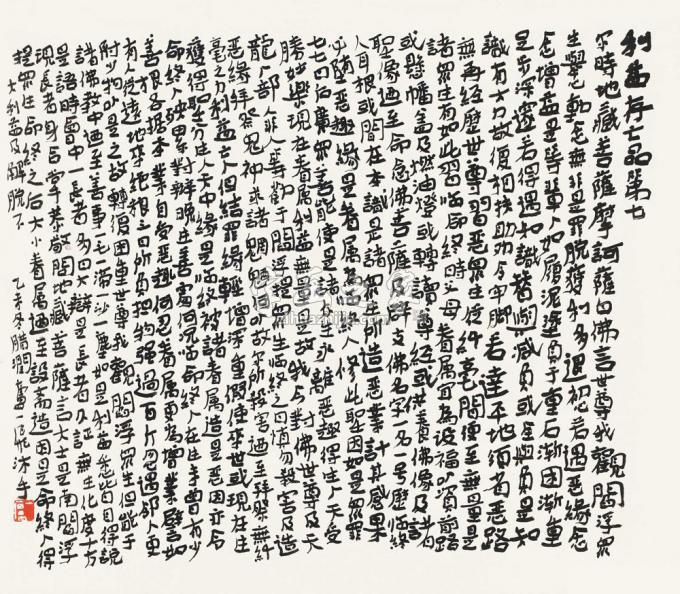 利益存亡品第七
尔時地藏菩薩摩訶薩白佛言世尊我觀閻浮眾
生舉動念無非是罪脫獲利多退初心若遇惡緣念
念增益是等輩人如履泥塗負于重石漸困漸重
足步深邃若得遇知識替與減負或全與負是知
識有大力故復相扶助勸令牢脚若達平地須省惡路
無再經歷世尊習惡眾生從纖毫間便至無量是
諸眾生有如此習臨命終時父母眷屬宜為設福以資前路
或懸幡蓋及燃油燈或轉讀尊經或供養佛像及諸
聖像迺至念佛菩薩及辟支佛名字一名一號歷臨終
人耳根或聞在本識是諸眾生所造惡業計其感果
必墮惡趣緣是眷屬為臨終人修此聖因如是眾罪
七七日內廣眾善能使是諸眾生永離惡趣得生人天受
勝妙樂現在眷屬利益無量是故我今對佛世尊及天
龍八部人非人等勸于閻浮提眾生臨終之日慎勿殺害及造
惡緣拜祭鬼神求諸魍魎何以故尔所殺害迺至拜祭無纖
毫之力利益亡人但結罪緣轉增深重假使來世或現在生
獲得聖分生人天中緣是臨終被諸眷屬造是惡因亦令
命終人殃累對辯晚生善處何況臨命終人在生未曾有少
善根各據本業自受惡趣何忍眷屬更為增業譬如
有人從遠地來絕糧三日所負擔物強過百斤忽遇鄰人更
附少物以是之故轉復困重世尊我觀閻浮眾生但能于
諸佛教中迺至善事一毛一渧一沙一塵如是利益悉皆自得說
是語時會中一長者名曰大辯是長者久證無生化度十方
現長者身合掌恭敬問地藏菩薩言大士是南閻浮
提眾生命終之后大小眷屬迺至設齋造因是命終人得
大利益及解脫不
乙亥冬臘沐手